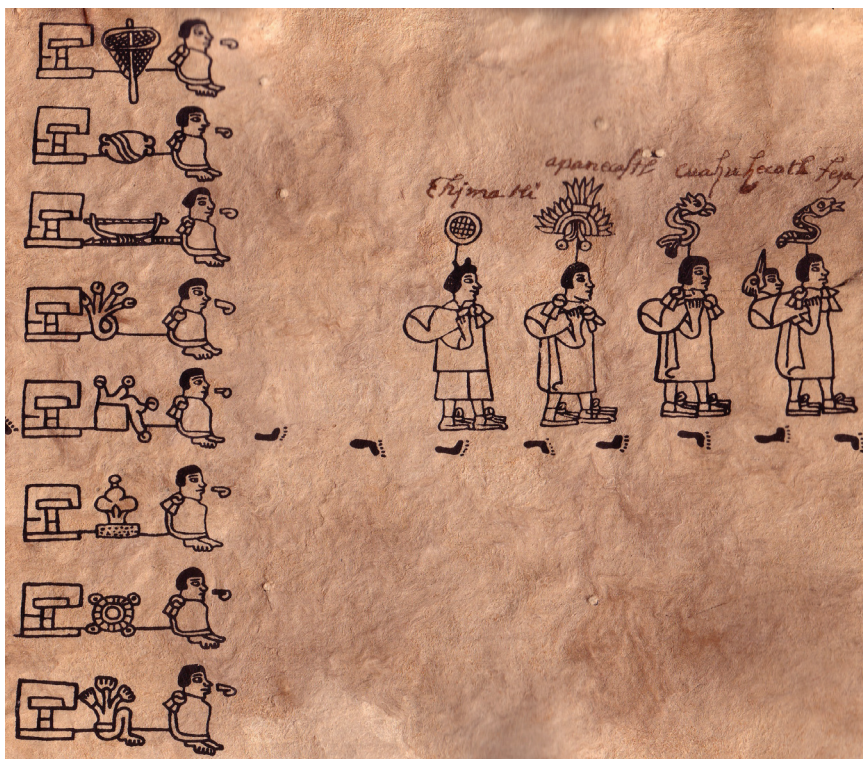 Chjmalli apanecatl cuahuhcoatl